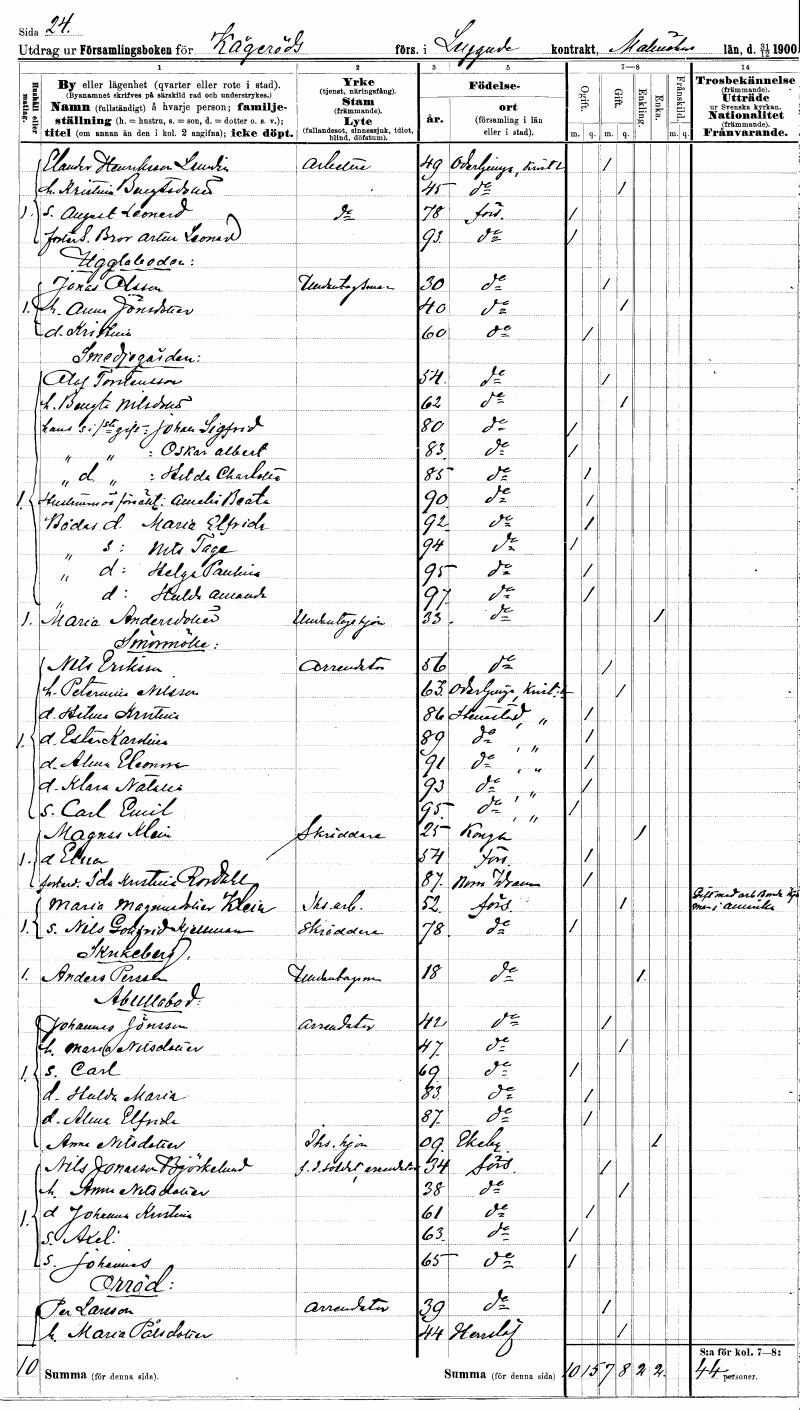 Sida 24.
Utdrag ur Församlingsboken för Kågeröds förs. i Luggude kontrakt, Malmöhus län, d. 31/12 1900
1 2 3 5 7—8 14
Hushåll eller matlag.
By eller lägenhet (qvarter eller rote i stad).
(Byanamnet skrifves på särskild rad och understrykes.)
Namn (fullständigt) å hvarje person; familje-
ställning (h. = hustru, s. = son, d. = dotter o. s. v.);
titel (om annan än den i kol. 2 angifna); icke döpt.
Yrke
(tjenst, näringsfång).
Stam
(främmande).
Lyte
(fallandesot, sinnessjuk, idiot,
blind, döfstum).
Födelse-
år.
ort
(församling i län
eller i stad).
Ogift. Gift. Enkling. Enka. Frånskild.
m. q. m. q. m. m. q.
Trosbekännelse
(främmande).
Utträde
ur Svenska kyrkan.
Nationalitet
(främmande).
Frånvarande.
Henriksson Lundin Arbetare 49 Oderljunga, Krist. l. /
h. Kristina Bengtsdotter 45 do /
1. s. August Leonard do 78 förs. /
foster s. Bror Artur Leonard 93 do /
Ugglaboden:
Jonas Olsson Undantagsman 30 do /
1. h. Anna Jönsdotter 40 do /
d. Kristina 60 do /
Smedjegården:
Olof Torstensson 54. do /
h. Bengta Nilsdotter 62 do /
hans s. i 1sta gift: Johan Sigfrid 80 do /
" " : Oskar Albert 83. do /
" d. " : Hilda Charlotta 85 do /
1. Amelie Beata 90 do /
Bådas d. Maria Elfrida 92 do /
" s: Nils Tage 94 do /
" d: Helga Paulina 95 do /
" d: Hulda Amanda 97 do /
1. Maria Andersdotter Undantagshjon 33. do /
Smörmölle:
Nils Eriksson Arrendator 56 do /
h. Petronella Nilsson 63. Oderljunga, Krist. l. /
d. Hilma Kristina 86 " /
1. d. Ester Karolina 89 do, " /
d. Alma Eleonora 91 do, " /
d. Klara Natalia 93 do, " /
s. Carl Emil 95 do, " /
Magnus Klein Skräddare 25 Konga /
1. d Elna 54 förs. /
fosterd. Ida Kristina Rosdahl 87. Norra Vram /
Maria Magnusdotter Klein Ihs. arb. 52. förs. / Gift med arb. man i Amerika
1. s. Nils Gottfrid Kjellman Skräddare 78. do /
Skrikeberg.
1. Anders Persson Undantagsm 18 do 1.
Abullabod:
Johannes Jönsson Arrendator 42 do /
h. Maria Nilsdotter 47 do /
1. s. Carl 69 do /
d. Hulda Maria 83. do /
d. Alma Elfrida 87. do /
Anna Nilsdotter Ihs. hjon 09. Ekeby /
Nils Jonasson Björkelund f. d. soldat, arrendator 34 förs. /
h. Anna Nilsdotter 38 do /
1. d Johanna Kristina 61 do /
s. Axel. 63. do /
s. Johannes 65 do /
Orröd:
Per Larsson Arrendator 39 do /
h. Maria Pålsdotter 44 Herrslöf /
S:a för kol. 7—8:
10 Summa (för denna sida). Summa (för denna sida) 10 15 7 8 2 2. 44 personer.